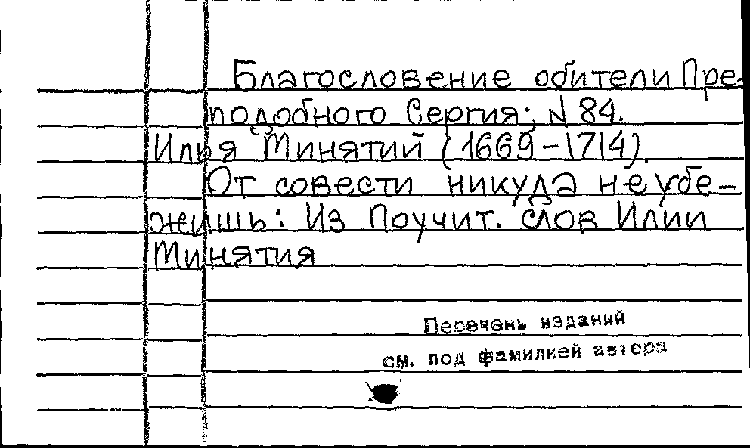 Благословение обители Пре-
подобного Сергия; N 84.
Илья Минятий (1669-1714).
От совести никуда не убе-
жишь: Из Поучит. слов Илии
Минятия
Перечень изданий
см. под фамилией автора